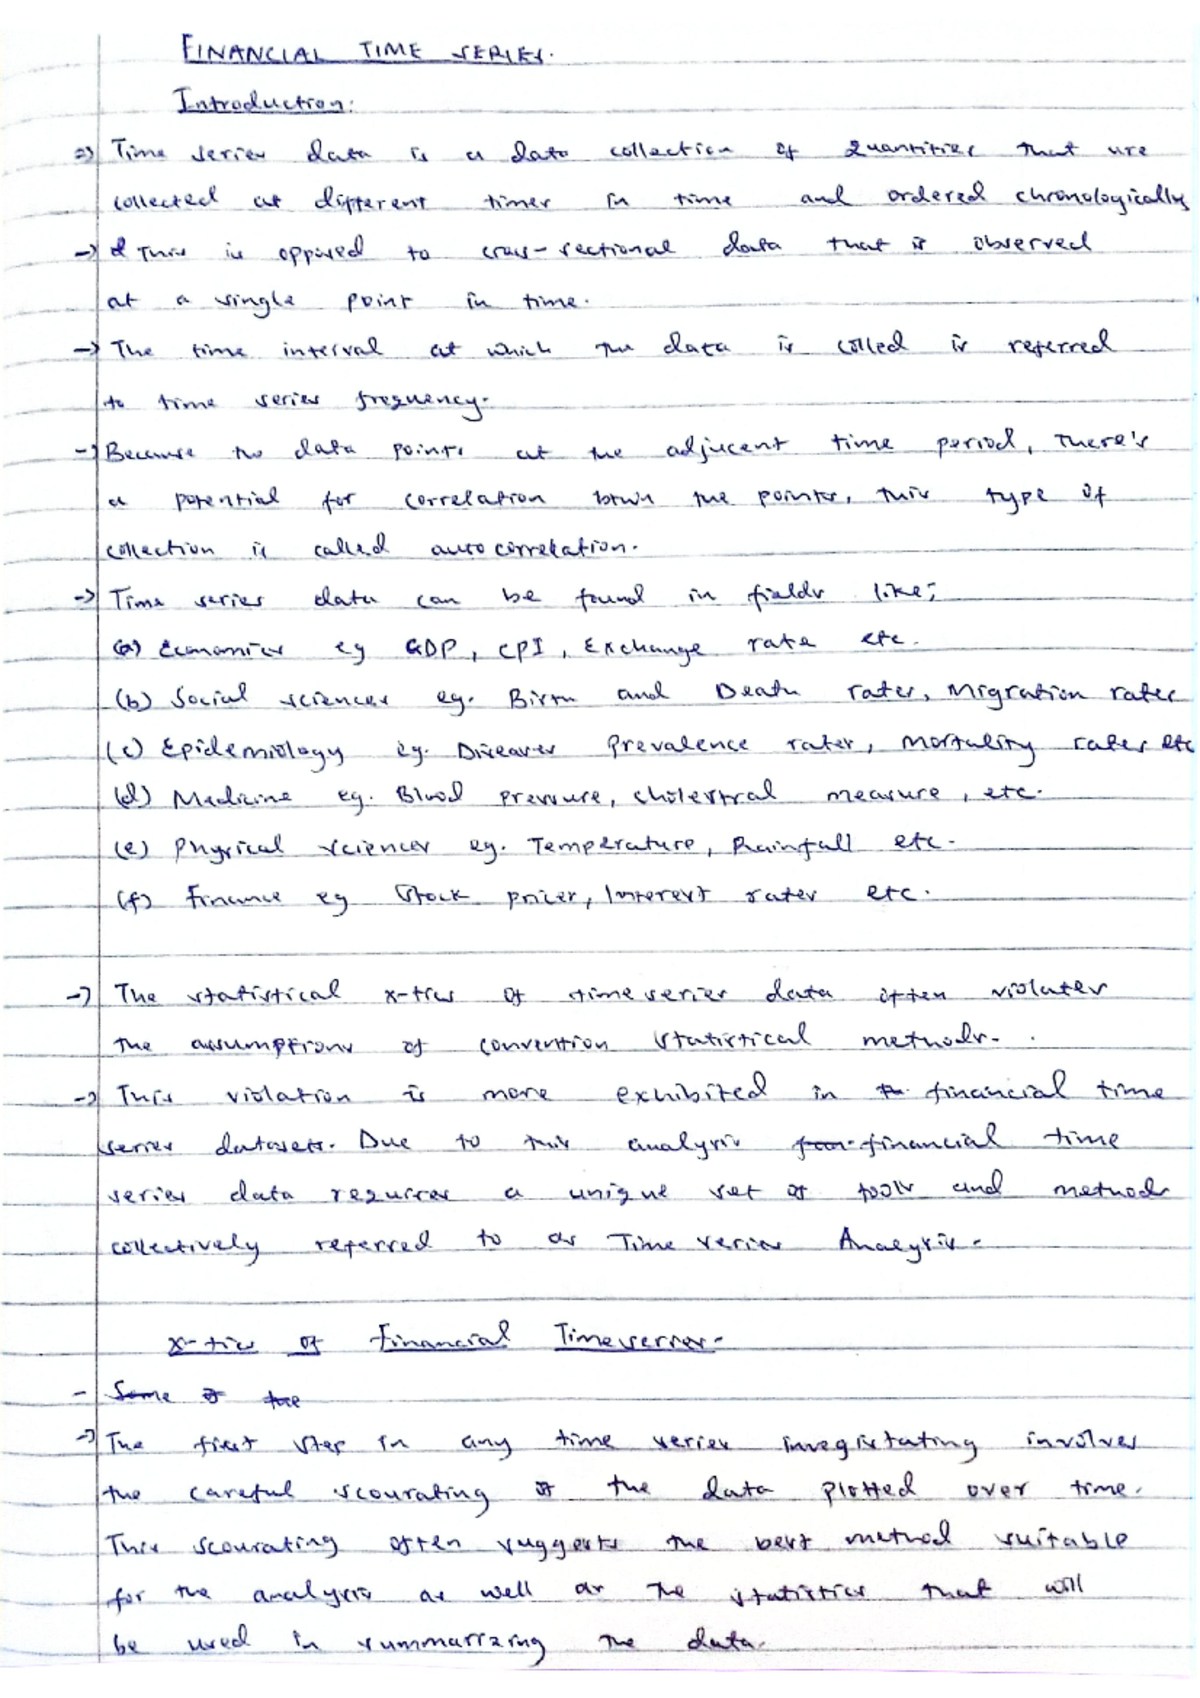 FINANCIAL TIME SERIES.
Introduction:
=> Time series data is a data collection of quantities that are
collected at different times in time and ordered chronologically
-> This is opposed to cross-sectional data that is observed
at a single point in time.
-> The time interval at which the data is colled is referred
to time series frequency.
-> Because two data points at the adjacent time period, There's
a potential for correlation btwn the points, this type of
collection is called autocorrelation.
-> Time series data can be found in fields like;
(a) Economics eg GDP, CPI, Exchange rate etc.
(b) Social sciences eg. Birth and Death rates, Migration rates
(c) Epidemiology eg. Diseases Prevalence rates, Mortality rates etc
(d) Medicine eg. Blood pressure, cholestral measure, etc.
(e) Physical sciences eg. Temperature, Rainfall etc.
(f) Finance eg Stock prices, Interest rates etc.
-> The statistical x-tics of time series data often violates
the assumptions of convention statistical methods.
-> This violation is more exhibited in financial time
series datasets. Due to this analysis financial time
series data requires a unique set of tools and methods
collectively referred to as Time series Analysis.
x-tics of Financial Timeseries.
- Some of the
-> The first step in any time series invegistating involves
the careful scourating of the data plotted over time.
This scourating often suggests the best method suitable
for the analysis as well as the statistics that will
be used in summarizing the data.